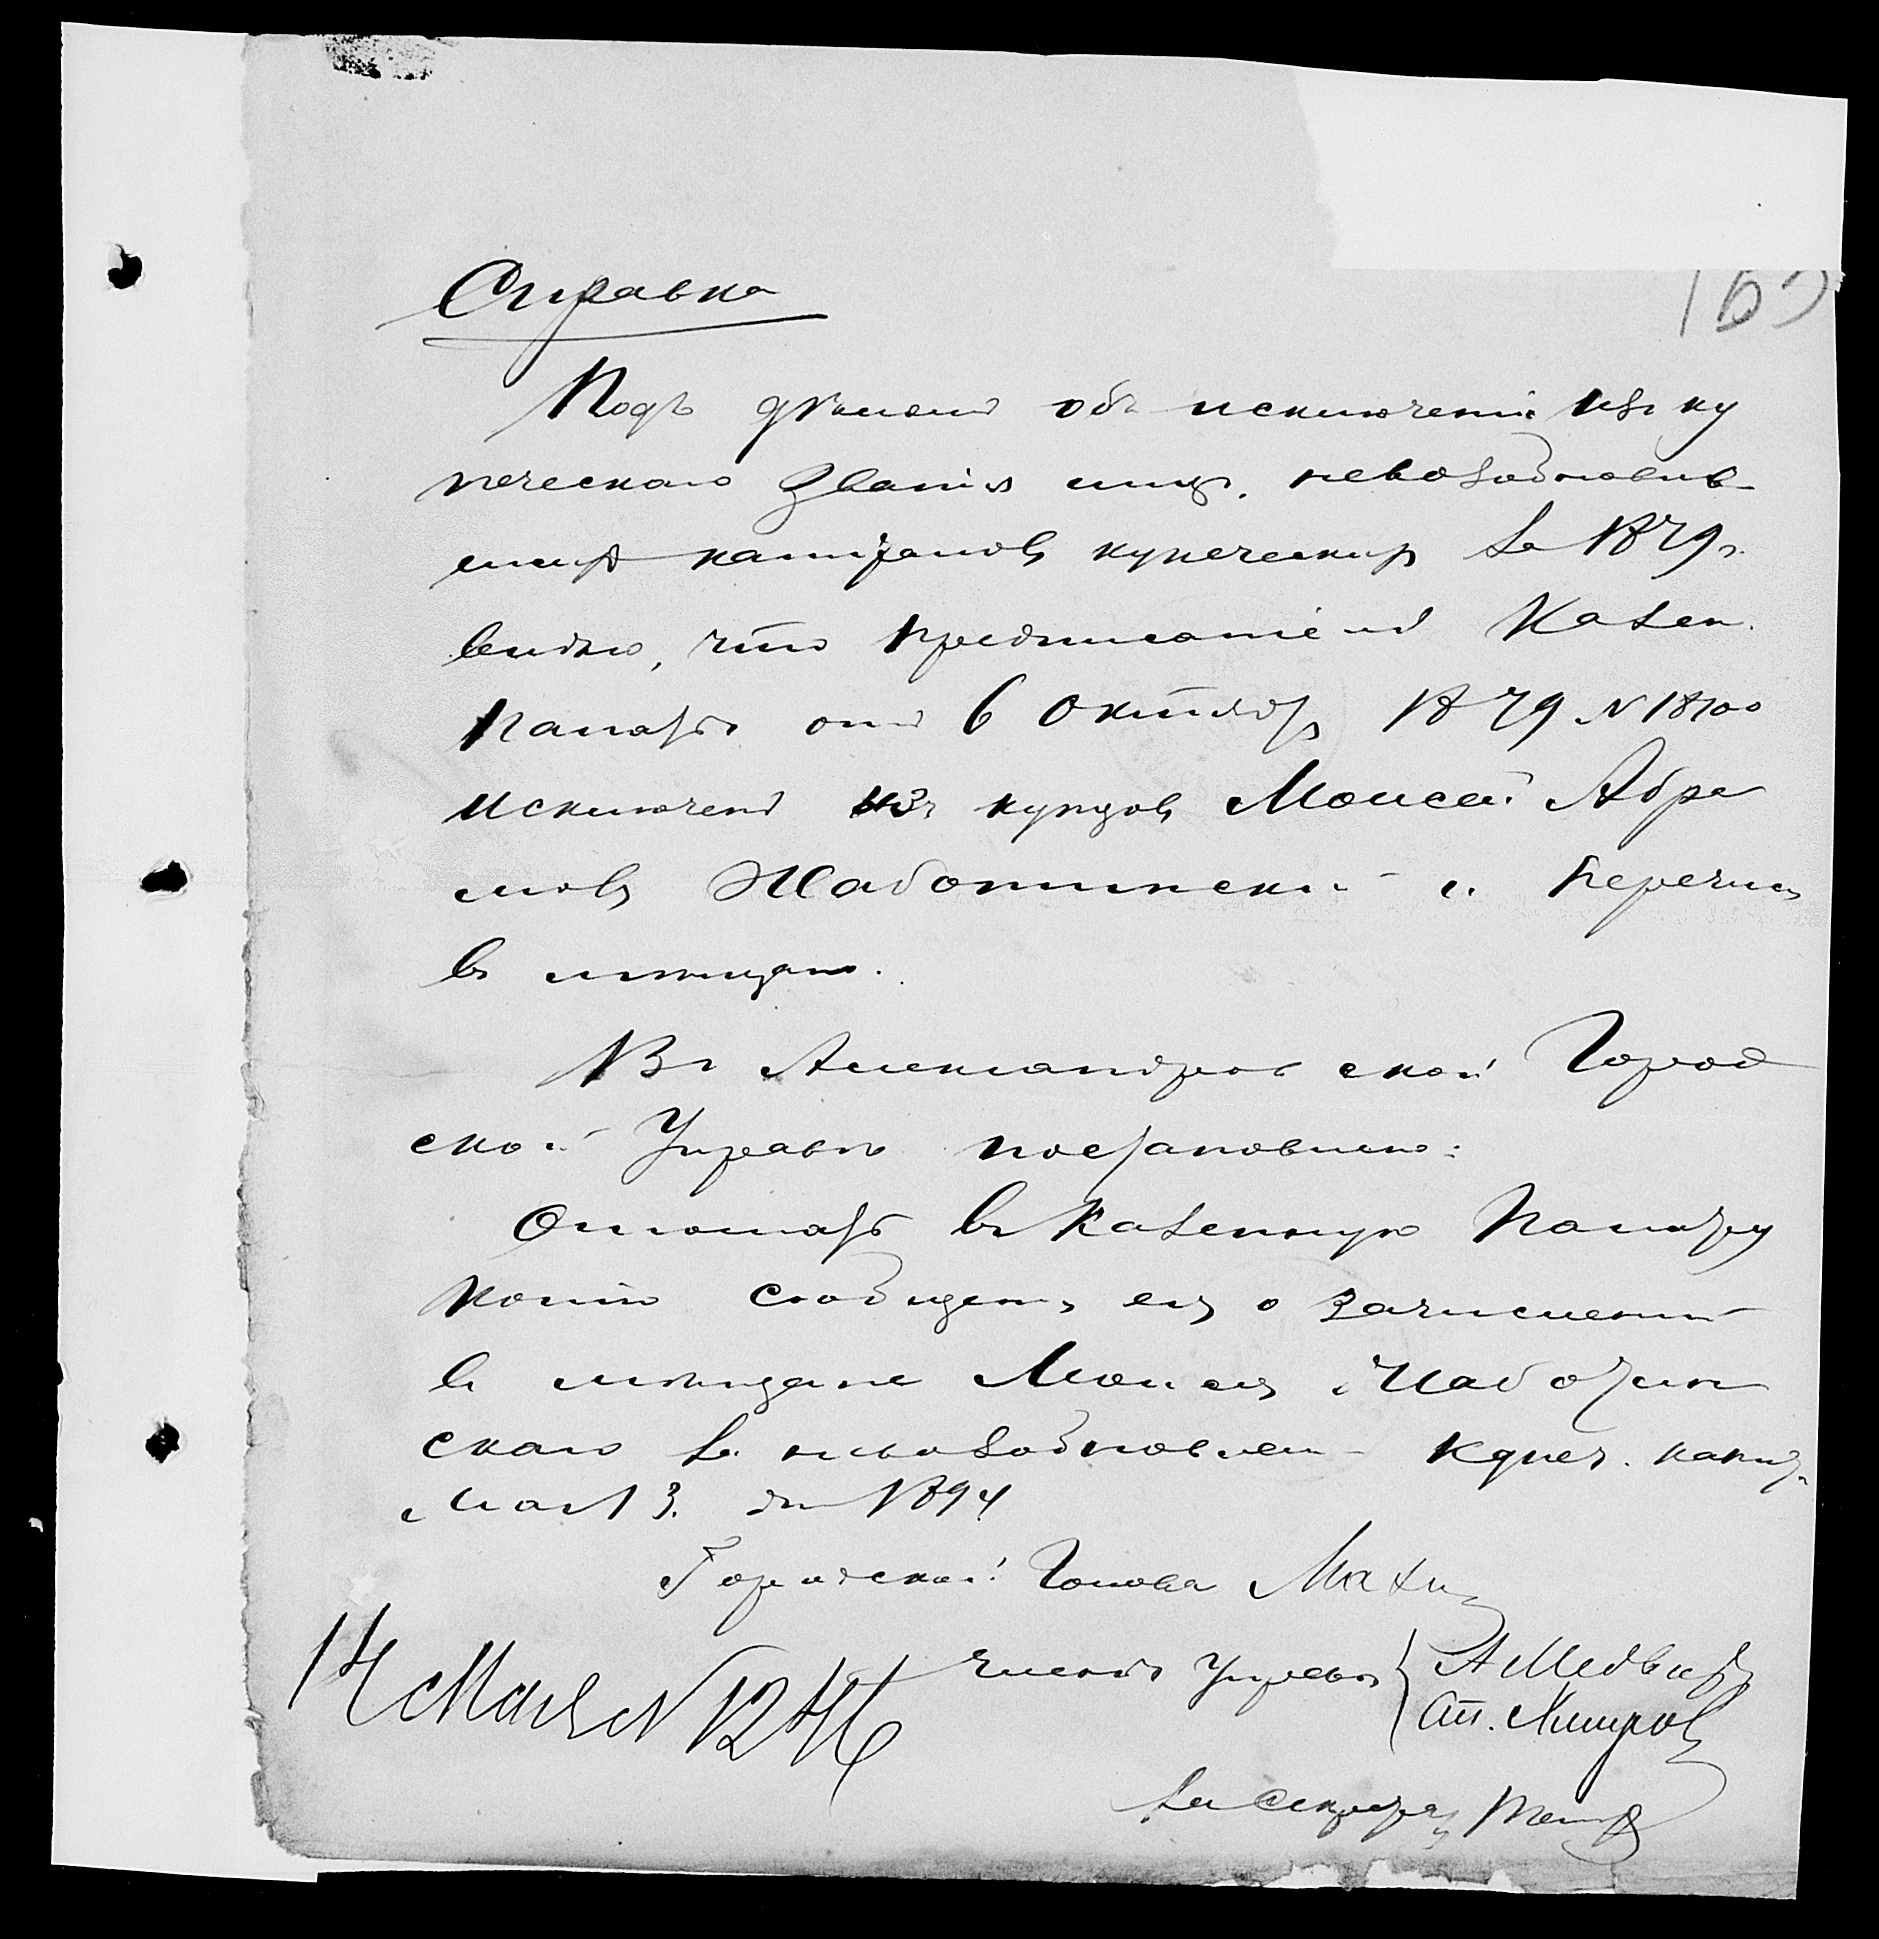 Справка
Подъ дѣломъ объ исключеніи изъ ку
печескаго званія лицъ, невозобновив-
шихъ капиталовъ купеческихъ за 1879 г.
видно, что предписаніемъ Казен.
Палаты отъ 6 Октября 1879 N 18700
исключенъ изъ купцовъ Моисей Абра
мовъ Жаботинскій и перечис
въ мѣщане.
Въ Александровской Город
ской Управѣ постановлено:
въ Казенную Палату
копію сообщенія ея о зачисленіи
въ мѣщане Моисея Жаботин
скаго за невозобновлен купеч. капит.
Мая 13 дня 1894
Городской Голова
14 Мая N 1246 Члены Управы
За Секретаря